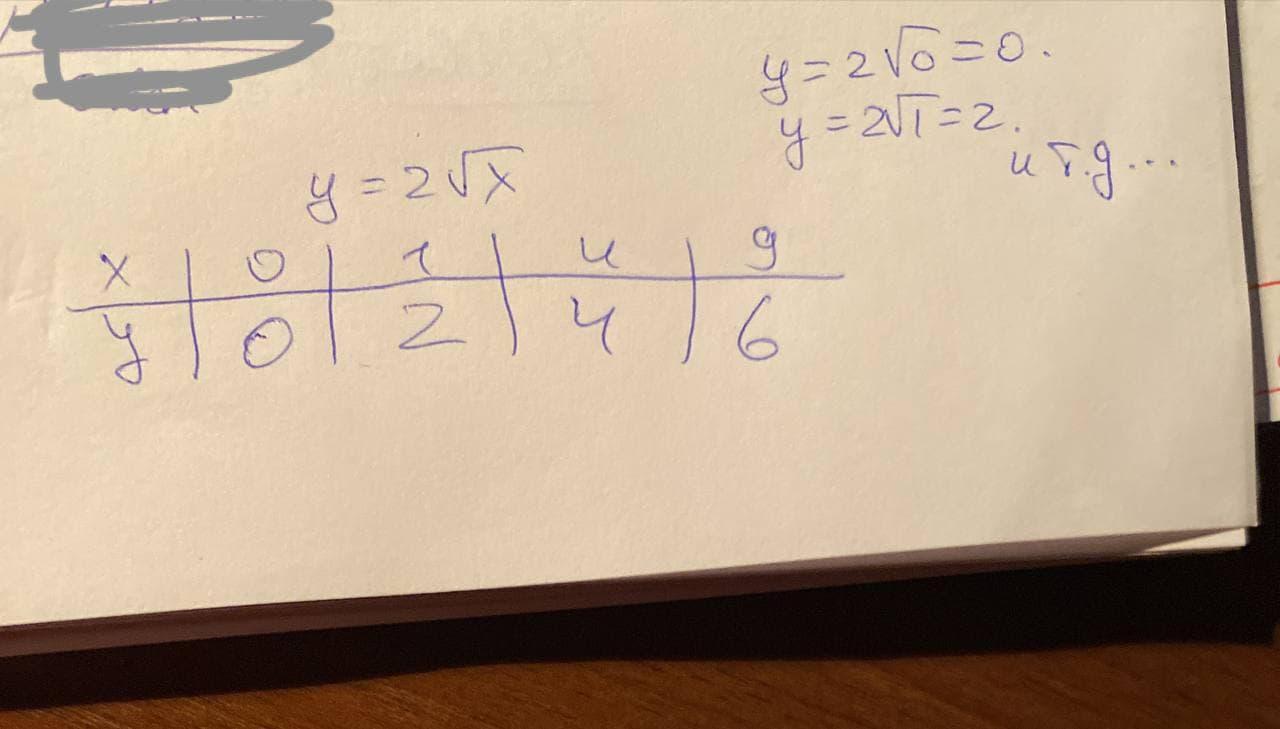 y = 2√0 = 0.
y = 2√1 = 2.
и т.д...
y = 2√x
x | 0 | 1 | 4 | 9
y | 0 | 2 | 4 | 6